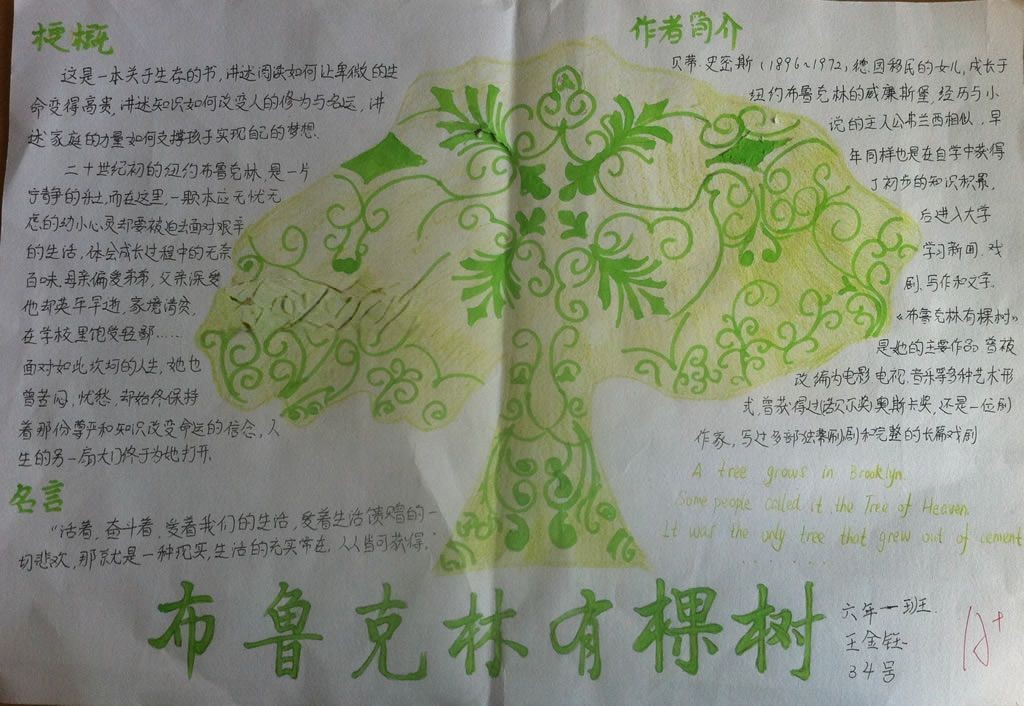 梗概
这是一本关于生存的书,讲述阅读如何让卑微的生
命变得高贵,讲述知识如何改变人的修为与名运,讲
述家庭的力量如何支撑孩子实现自己的梦想.
二十世纪初的纽约布鲁克林,是一片
宁静的乐土,而在这里,一颗本应无忧无
虑的幼小心灵却要被迫去面对艰辛
的生活,体会成长过程中的无奈
百味,母亲偏爱弟弟,父亲深爱
他却英年早逝,家境清贫,
在学校里饱受轻鄙……
面对如此坎坷的人生,她也
曾苦闷,忧愁,却始终保持
着那份尊严和知识改变命运的信念,人
生的另一扇大门终于为她打开.
名言
“活着,奋斗着,爱着我们的生活,爱着生活馈赠的一
切悲欢,那就是一种现实,生活的充实常在,人人皆可获得.
作者简介
贝蒂·史密斯(1896~1972)德国移民的女儿,成长于
纽约布鲁克林的威廉斯堡,经历与小
说的主人公弗兰西相似,早
年同样也是在自学中获得
了初步的知识积累,
后进入大学
学习新闻.戏
剧,写作和文学.
《布鲁克林有棵树》
是她的主要作品,曾被
改编为电影 电视.音乐等多种艺术形
式,曾获得过(诺贝尔奖)奥斯卡奖,还是一位剧
作家,写过多部独幕剧剧和完整的长篇戏剧
A tree grows in Brooklyn.
Some people called it the Tree of Heaven.
It was the only tree that grew out of cement
........
布鲁克林有棵树
六年一班.
王金钰
34号
A+